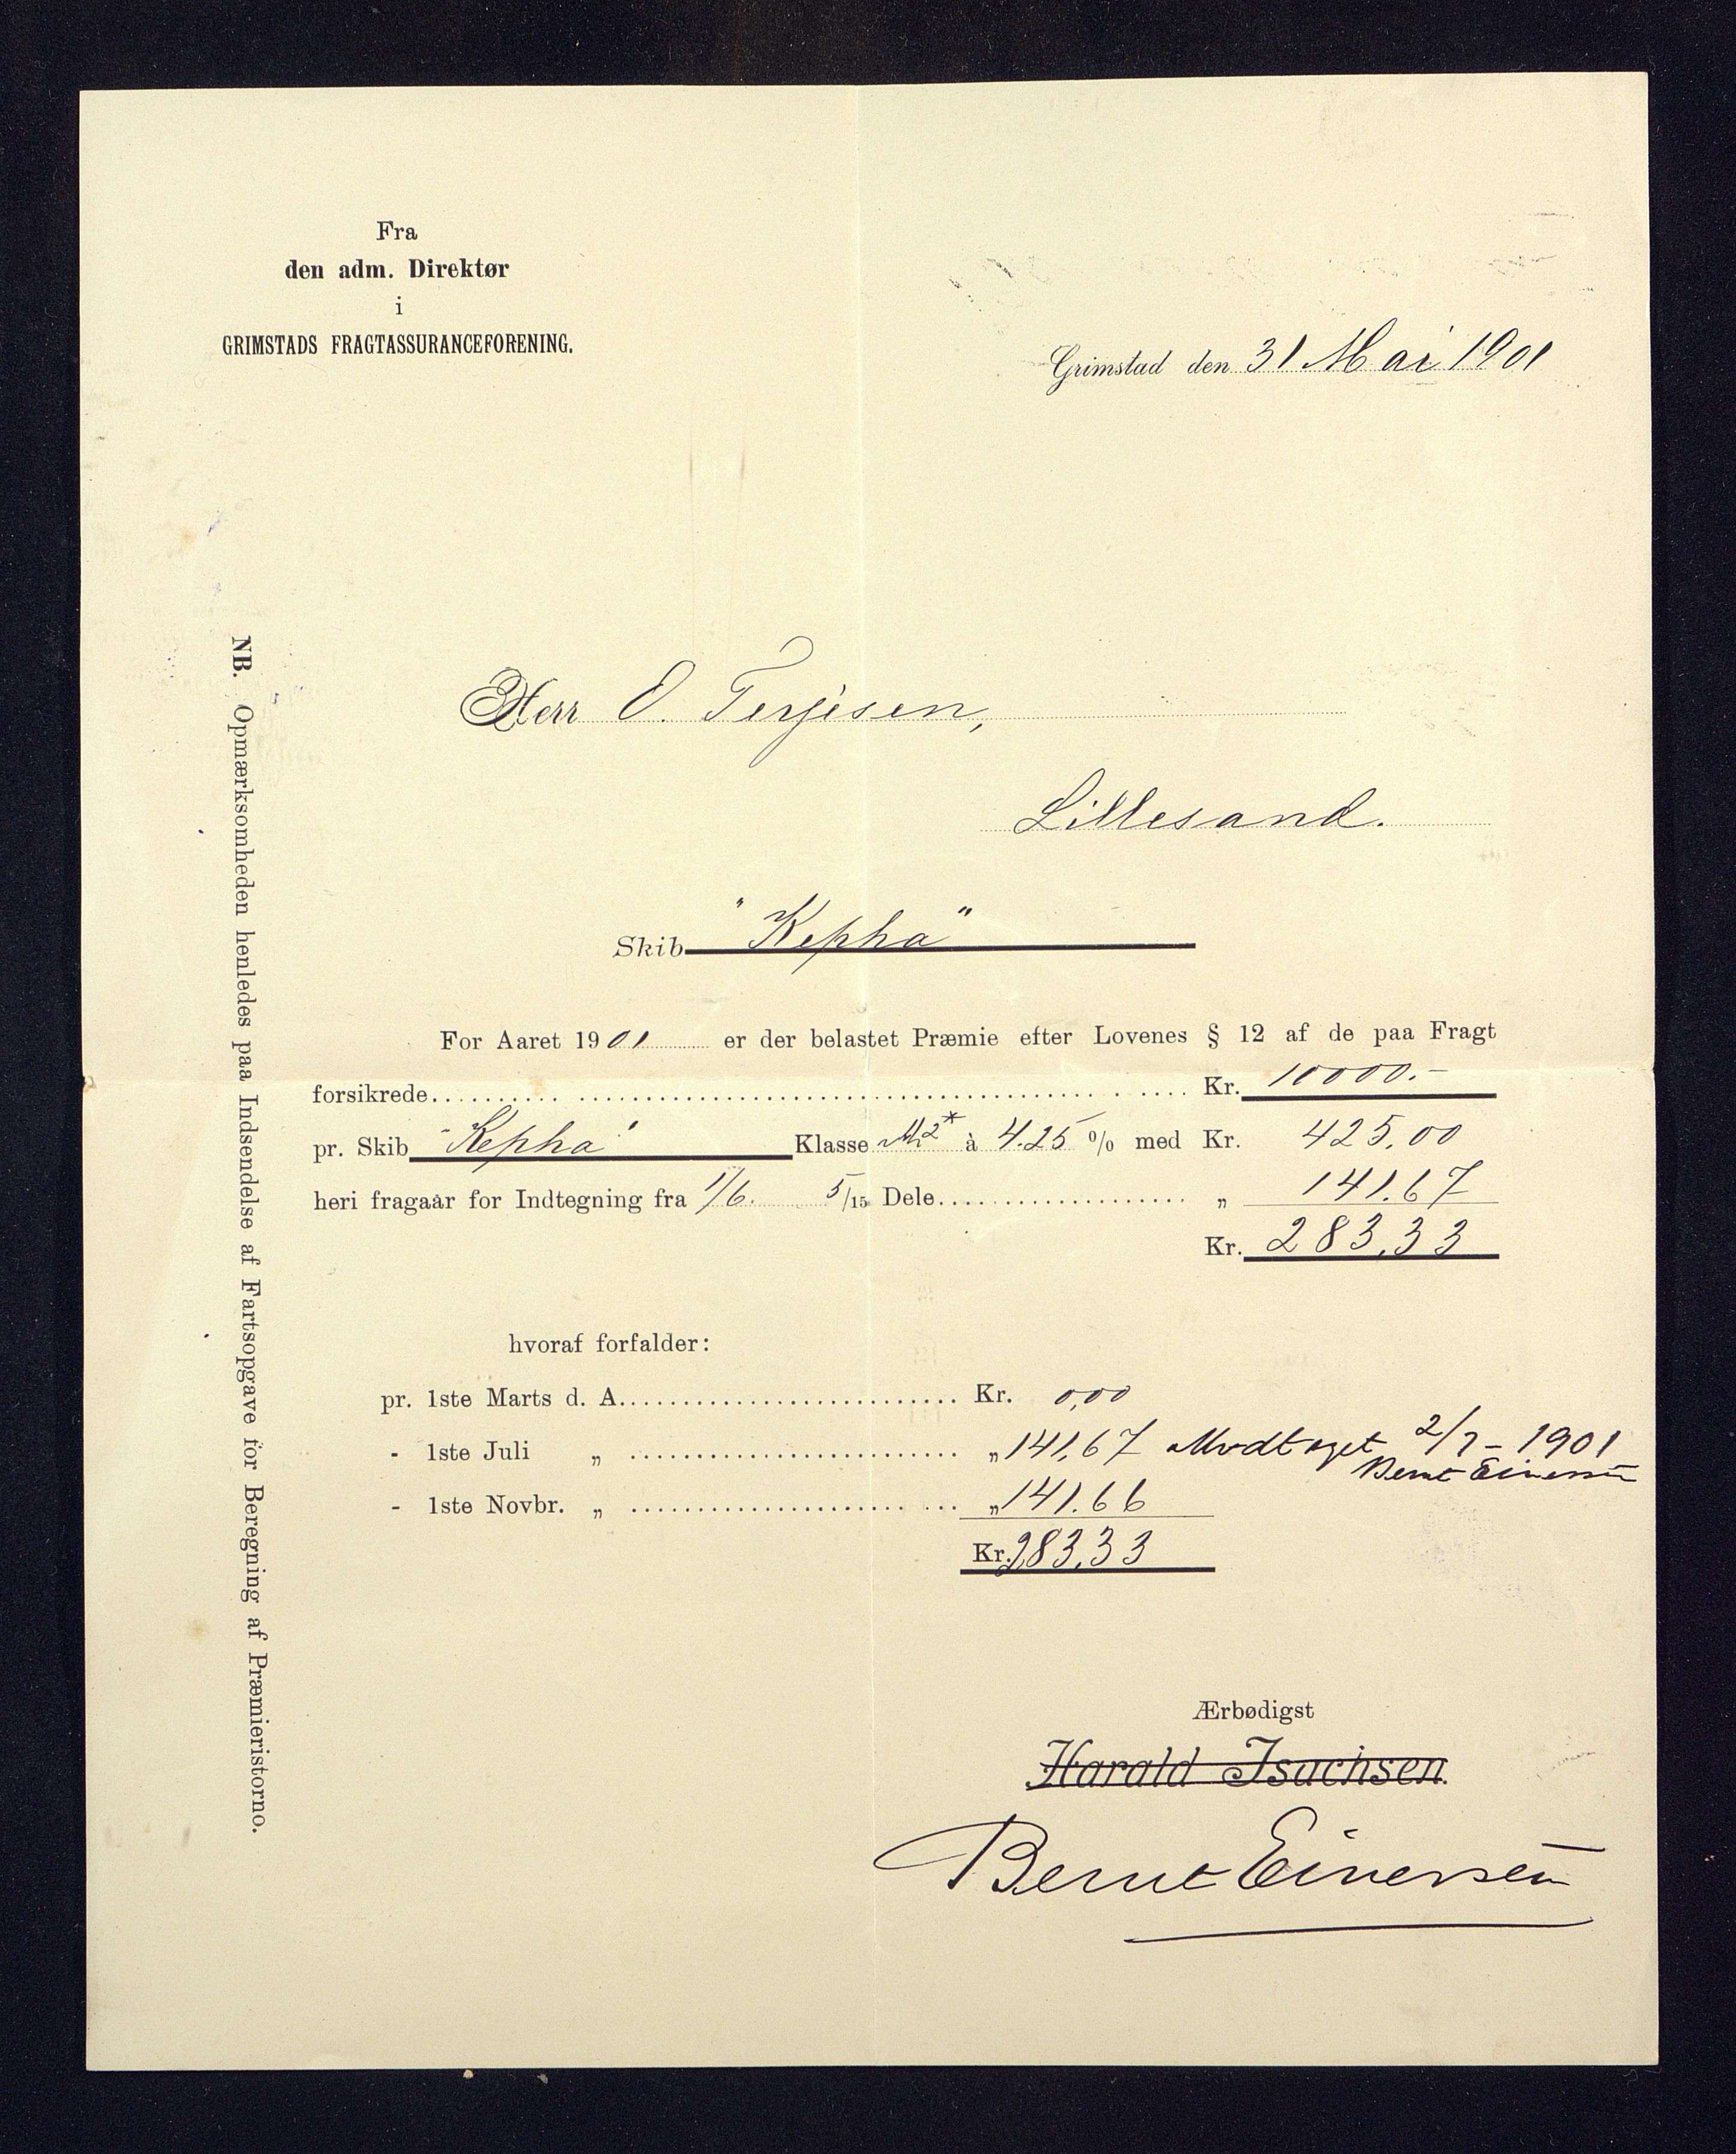 Fra
den adm. Direktør
i
GRIMSTADS FRAGTASSURANCEFORENING.
Grimstad den 31 Mai 1901
Herr O. Terjesen,
Lillesand.
Skib "Kepha"
For Aaret 1901 er der belastet Præmie efter Lovenes § 12 af de paa Fragt
forsikrede Kr. 10000.-
pr. Skib "Kepha" Klasse 2* à 4.25 % med Kr. 425,00
heri fragaar for Indtegning fra 1/6. 5/15 Dele „ 141.67
Kr. 283,33
hvoraf forfalder:
pr. 1ste Marts d. A. Kr. 0,00
- 1ste Juli „ „ 141,67 Modtaget 2/7 - 1901
Bernt Einersen
- 1ste Novbr. „ „ 141.66
Kr. 283,33
Ærbødigst
Harald Isachsen.
Bernt Einersen
NB. Opmærksomheden henledes paa Indsendelse af Fartsopgave for Beregning af Præmieristorno.